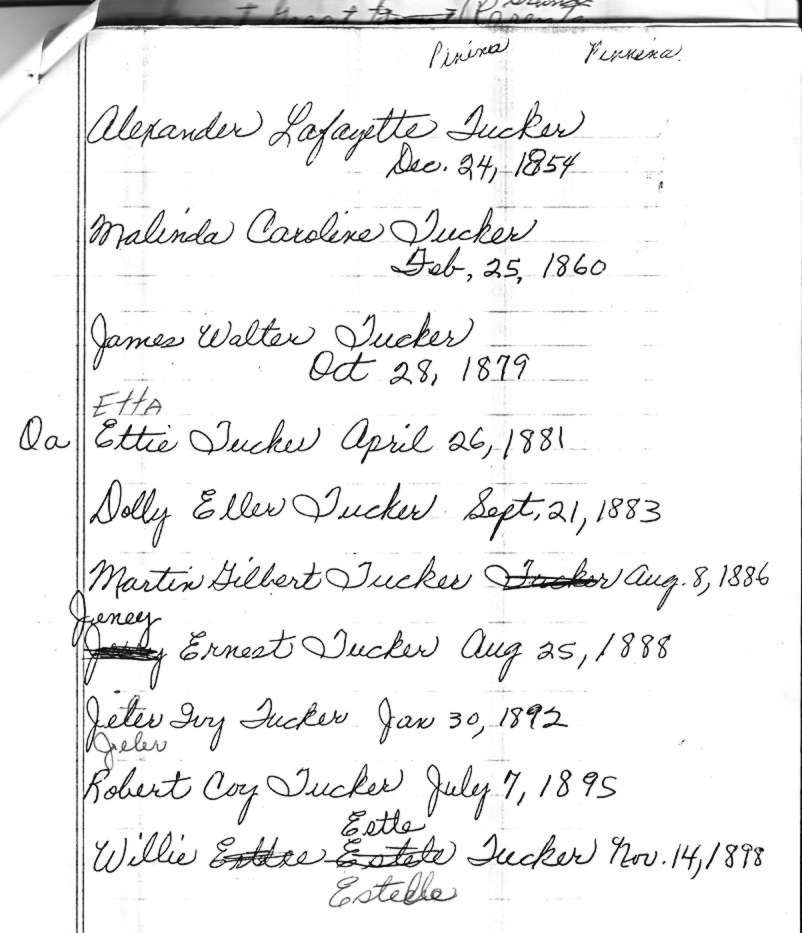 Great Great Parents
Pinina Finnina.
Alexander Lafayette Tucker
Dec. 24, 1854
Malinda Caroline Tucker
Feb, 25, 1860
James Walter Tucker
Oct 28, 1879
Etta
Qa Ettie Tucker April 26, 1881
Dolly Eller Tucker Sept. 21, 1883
Martin Gilbert Tucker Tucker Aug. 8, 1886
Jeney
Ernest Tucker Aug 25, 1888
Jeter Ivy Tucker Jan 30, 1892
Jeler
Robert Coy Tucker July 7, 1895
Estle
Willie Estele Tucker Nov. 14, 1898
Estelle